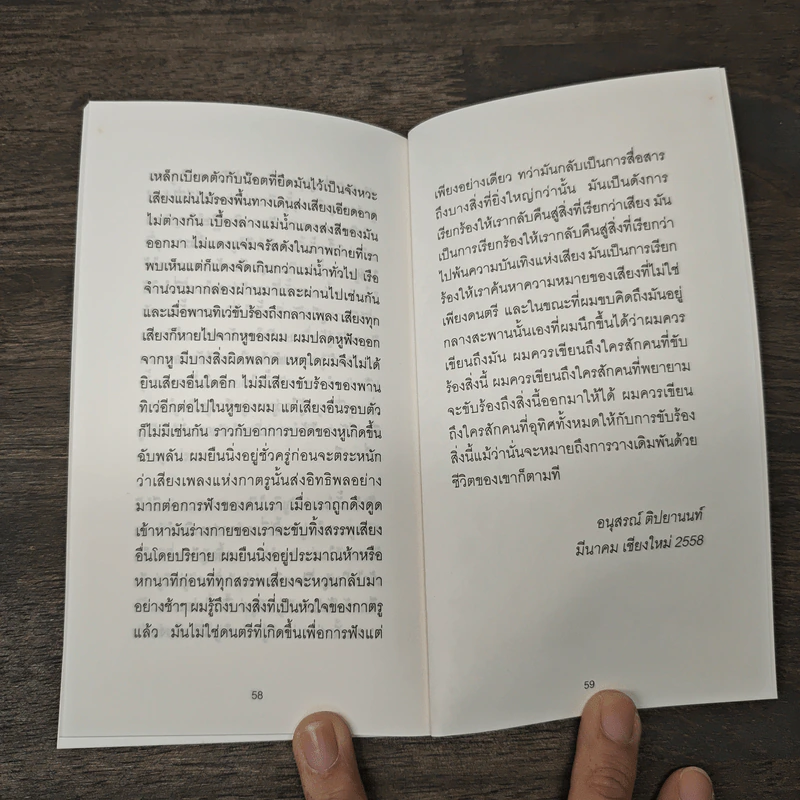 เหล็กเบียดตัวกับน๊อตที่ยึดมันไว้เป็นจังหวะ
เสียงแผ่นไม้รองพื้นทางเดินส่งเสียงเอียดอาด
ไม่ต่างกัน เบื้องล่างแม่น้ำแดงส่งสีของมัน
ออกมา ไม่แดงแจ่มจรัสดังในภาพถ่ายที่เรา
พบเห็นแต่ก็แดงจัดเกินกว่าแม่น้ำทั่วไป เรือ
จำนวนมากล่องผ่านมาและผ่านไปเช่นกัน
และเมื่อพานทิเว่ขับร้องถึงกลางเพลง เสียงทุก
เสียงก็หายไปจากหูของผม ผมปลดหูฟังออก
จากหู มีบางสิ่งผิดพลาด เหตุใดผมจึงไม่ได้
ยินเสียงอื่นใดอีก ไม่มีเสียงขับร้องของพาน
ทิเว่อีกต่อไปในหูของผม แต่เสียงอื่นรอบตัว
ก็ไม่มีเช่นกัน ราวกับอาการบอดของหูเกิดขึ้น
ฉับพลัน ผมยืนนิ่งอยู่ชั่วครู่ก่อนจะตระหนัก
ว่าเสียงเพลงแห่งกาตรูนั้นส่งอิทธิพลอย่าง
มากต่อการฟังของคนเรา เมื่อเราถูกดึงดูด
เข้าหามันร่างกายของเราจะขับทิ้งสรรพเสียง
อื่นโดยปริยาย ผมยืนนิ่งอยู่ประมาณห้าหรือ
หกนาทีก่อนที่ทุกสรรพเสียงจะหวนกลับมา
อย่างช้าๆ ผมรู้ถึงบางสิ่งที่เป็นหัวใจของกาตรู
แล้ว มันไม่ใช่ดนตรีที่เกิดขึ้นเพื่อการฟังแต่
58
เพียงอย่างเดียว ทว่ามันกลับเป็นการสื่อสาร
ถึงบางสิ่งที่ยิ่งใหญ่กว่านั้น มันเป็นดังการ
เรียกร้องให้เรากลับคืนสู่สิ่งที่เรียกว่าเสียง มัน
เป็นการเรียกร้องให้เรากลับคืนสู่สิ่งที่เรียกว่า
ไปพ้นความบันเทิงแห่งเสียง มันเป็นการเรียก
ร้องให้เราค้นหาความหมายของเสียงที่ไม่ใช่
เพียงดนตรี และในขณะที่ผมขบคิดถึงมันอยู่
กลางสะพานนั้นเองที่ผมนึกขึ้นได้ว่าผมควร
เขียนถึงมัน ผมควรเขียนถึงใครสักคนที่ขับ
ร้องสิ่งนี้ ผมควรเขียนถึงใครสักคนที่พยายาม
จะขับร้องถึงสิ่งนี้ออกมาให้ได้ ผมควรเขียน
ถึงใครสักคนที่อุทิศทั้งหมดให้กับการขับร้อง
สิ่งนี้แม้ว่านั่นจะหมายถึงการวางเดิมพันด้วย
ชีวิตของเขาก็ตามที
อนุสรณ์ ติปยานนท์
มีนาคม เชียงใหม่ 2558
59